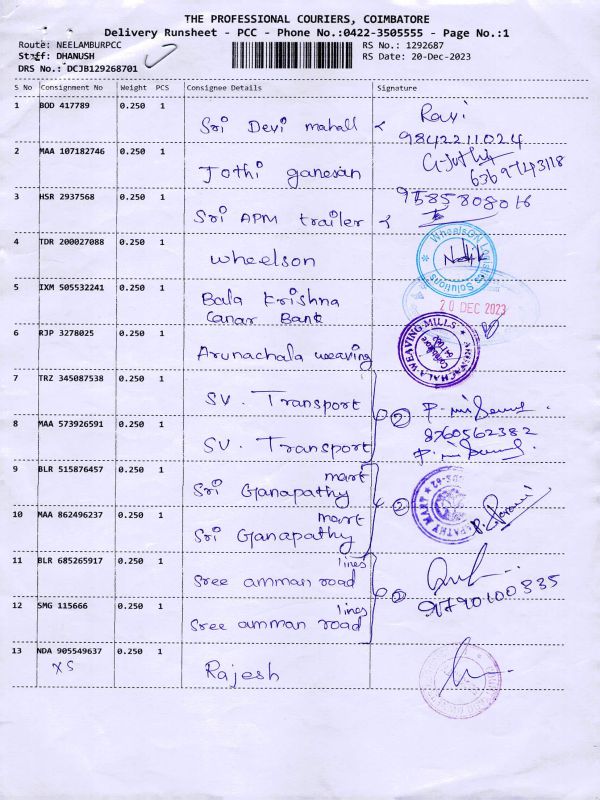 THE PROFESSIONAL COURIERS, COIMBATORE
Delivery Runsheet - PCC - Phone No.:0422-3505555 - Page No.:1
Route: NEELAMBURPCC RS No.: 1292687
Staff: DHANUSH RS Date: 20-Dec-2023
DRS No.: DCJB129268701
S No Consignment No Weight PCS Consignee Details Signature
1 BOD 417789 0.250 1 Sri Devi mahall Ravi
9842211024
2 MAA 107182746 0.250 1 Jothi ganesan
3 HSR 2937568 0.250 1 Sri APM trailer 9585808016
4 TDR 200027088 0.250 1 wheelson
5 IXM 505532241 0.250 1 Bala Krishna
Canar Bank
20 DEC 2023
6 RJP 3278025 0.250 1 Arunachala weaving ARUNACHALA WEAVING MILLS
7 TRZ 345087538 0.250 1 SV. Transport 2
8 MAA 573926591 0.250 1 SV. Transport 8760562382
9 BLR 515876457 0.250 1 Sri Ganapathy mart 2
10 MAA 862496237 0.250 1 Sri Ganapathy mart
11 BLR 685265917 0.250 1 Sree amman road lines 2
9790100335
12 SMG 115666 0.250 1 Sree amman road lines
13 NDA 905549637 0.250 1 Rajesh
XS